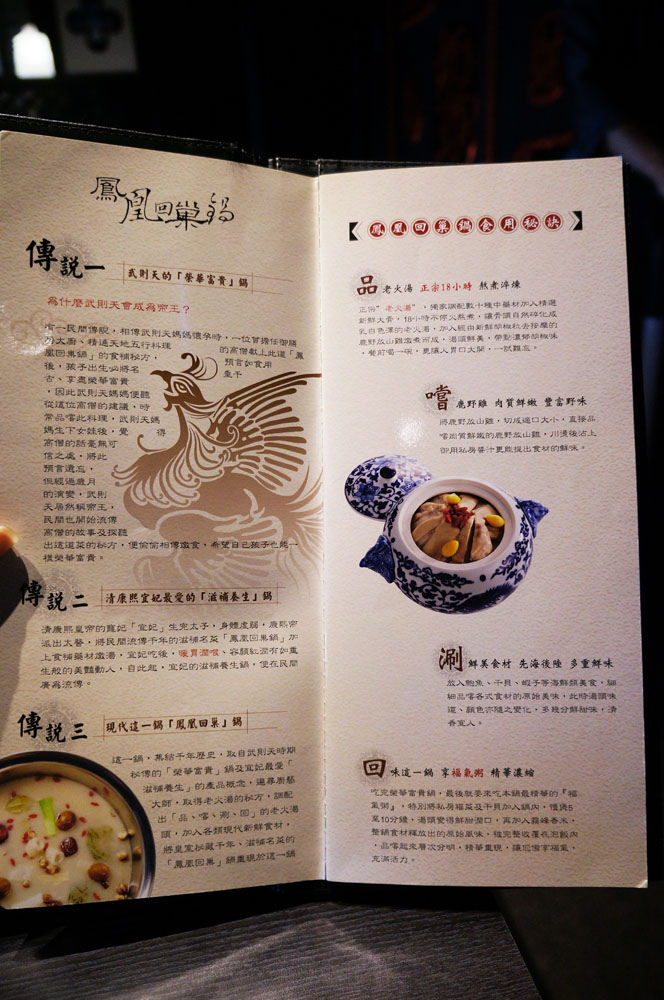 鳳凰回巢鍋
傳說一 武則天的「榮華富貴」鍋
為什麼武則天會成為帝王？
有一民間傳說，相傳武則天媽媽懷孕時，一位曾擔任御膳
房大廚、精通天地五行料理 的高僧獻上此道「鳳
凰回巢鍋」的食補秘方， 預言如食用
後，孩子出生必將名 垂千
古、享盡榮華富貴
，因此武則天媽媽便聽
從這位高僧的建議，時
常品嚐此料理，武則天媽
媽生下女娃後，覺得
高僧的話毫無可
信之處，將此
預言遺忘，
但經過歲月
的演變，武則
天居然稱帝王，
民間也開始流傳
高僧的故事及探聽
出這道菜的秘方，便偷偷相傳燉食，希望自己孩子也能一
樣榮華富貴。
傳說二 清康熙宜妃最愛的「滋補養生」鍋
清康熙皇帝的寵妃「宜妃」生完太子，身體虛弱，康熙帝
派出太醫，將民間流傳千年的滋補名菜「鳳凰回巢鍋」加
上食補藥材燉湯，宜妃吃後，暖胃潤喉、容顏紅潤有如重
生般的美豔動人，自此起，宜妃的滋補養生鍋，便在民間
廣為流傳。
傳說三 現代這一鍋「鳳凰回巢」鍋
這一鍋，集結千年歷史，取自武則天時期
秘傳的「榮華富貴」鍋及宜妃最愛「
滋補養生」的產品概念，遍尋廚藝
大師，取得老火湯的秘方，調配
出「品、嚐、涮、回」的老火湯
頭，加入各類現代新鮮食材，
將皇室秘藏千年、滋補名菜的
「鳳凰回巢」鍋重現於這一鍋
鳳凰回巢鍋食用秘訣
品 老火湯 正宗18小時 熬煮淬煉
正宗"老火湯"、獨家調配數十種中藥材加入精選
新鮮大骨，18小時不停火熬煮，讓骨頭自然碎化成
乳白色澤的老火湯，加入經由新鮮胡椒粒去按摩的
鹿野放山雞燉煮而成，湯頭鮮美，帶點濃郁胡椒味
，餐前喝一碗，更讓人胃口大開，一試難忘。
嚐 鹿野雞 肉質鮮嫩 豐富野味
將鹿野放山雞，切成適口大小，直接品
嚐肉質鮮嫩的鹿野放山雞，川燙後沾上
御用私房醬汁更能提出食材的鮮味。
涮 鮮美食材 先海後陸 多重鮮味
放入鮑魚、干貝、蝦子等海鮮類美食，細
細品嚐各式食材的原始美味，此時湯頭味
道、顏色亦隨之變化，多幾分鮮甜味，清
香宜人。
回 味這一鍋 享福氣粥 精華濃縮
吃完榮華富貴鍋，最後就要來吃本鍋最精華的『福
氣粥』，特別將私房榨菜及干貝加入鍋內，慢煲5
至10分鐘，湯頭變得鮮甜潤口，再加入霧峰香米，
整鍋食材釋放出的原始風味，確完整收覆在泡飯內
，品嚐起來層次分明，精華重現，讓您備享福氣，
充滿活力。